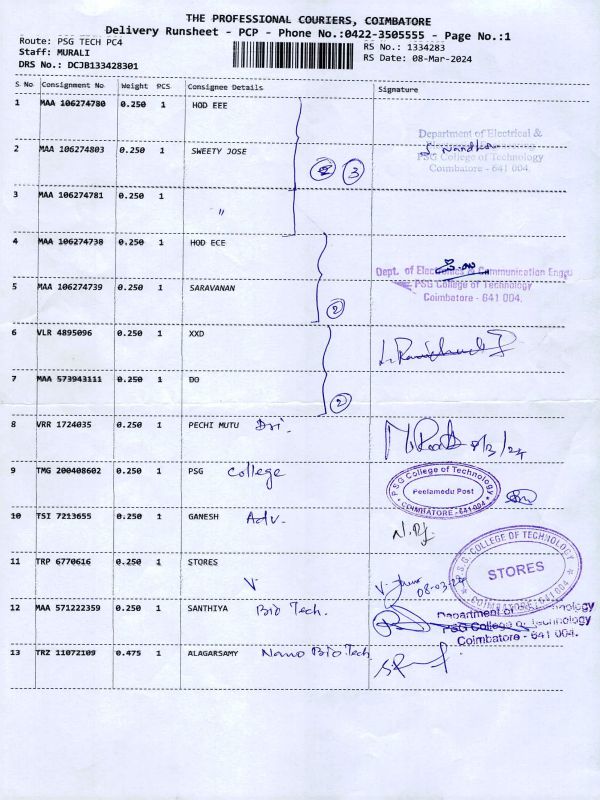 THE PROFESSIONAL COURIERS, COIMBATORE
Delivery Runsheet - PCP - Phone No.:0422-3505555 - Page No.:1
Route: PSG TECH PC4
RS No.: 1334283
Staff: MURALI
RS Date: 08-Mar-2024
DRS No.: DCJB133428301
S No Consignment No Weight PCS Consignee Details Signature
1 MAA 106274780 0.250 1 HOD EEE
Department of Electrical &
2 MAA 106274803 0.250 1 SWEETY JOSE
PSG College of Technology
Coimbatore - 641 004.
3
3 MAA 106274781 0.250 1 "
4 MAA 106274738 0.250 1 HOD ECE
Dept. of Electronics & Communication Engg
5 MAA 106274739 0.250 1 SARAVANAN
PSG College of Technology
Coimbatore - 641 004.
2
6 VLR 4895096 0.250 1 XXD
7 MAA 573943111 0.250 1 DO
2
8 VRR 1724035 0.250 1 PECHI MUTU Dri.
8/3/24
9 TMG 200408602 0.250 1 PSG College
PSG College of Technology
Peelamedu Post
COIMBATORE - 641 004
10 TSI 7213655 0.250 1 GANESH Adv.
11 TRP 6770616 0.250 1 STORES
V
08-03-24
P.S.G. COLLEGE OF TECHNOLOGY
STORES
COIMBATORE - 641 004
12 MAA 571222359 0.250 1 SANTHIYA Bio Tech.
Department of Biotechnology
PSG College of Technology
Coimbatore - 641 004.
13 TRZ 11072109 0.475 1 ALAGARSAMY Nano Bio Tech